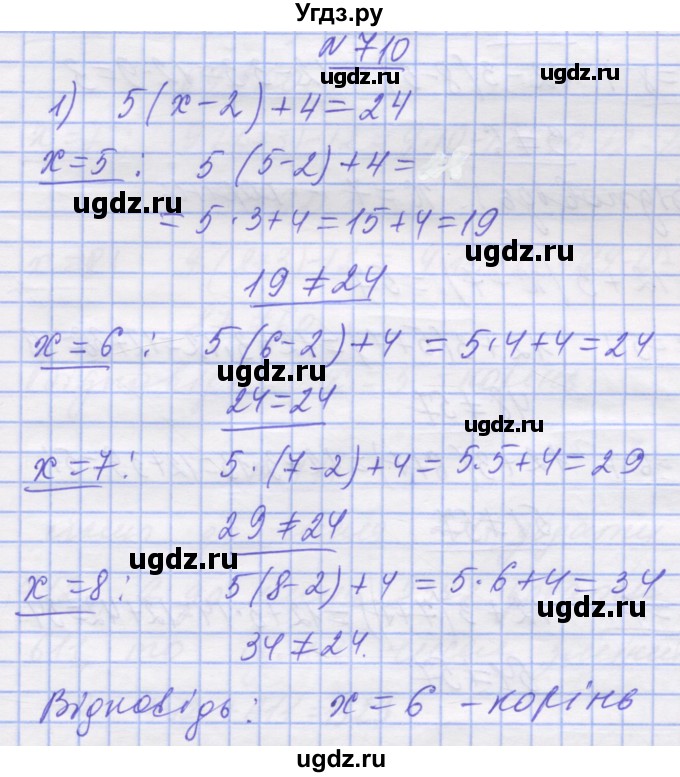 Угдз.ру
N 710
ugdz.ru
1) 5(x-2)+4=24
ugdz.ru
x=5 : 5(5-2)+4=
ugdz.ru
= 5·3+4=15+4=19
ugdz.ru
19 ≠ 24
x=6 : 5(6-2)+4 = 5·4+4=24
ugdz.ru
ugdz.ru
24=24
ugdz.ru
x=7: 5·(7-2)+4=5·5+4=29
29 ≠ 24
ugdz.ru
ugdz.ru
x=8: 5(8-2)+4 = 5·6+4=34
ugdz.ru
34 ≠ 24.
Відповідь: x=6 - корінь
ugdz.ru
ugdz.ru